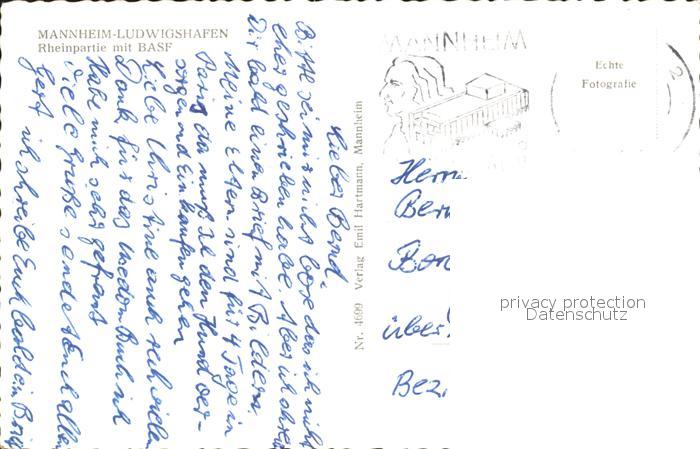 MANNHEIM-LUDWIGSHAFEN
Rheinpartie mit BASF
MANNHEIM
Echte
Fotografie
Nr. 4699 Verlag Emil Hartmann, Mannheim
Lieber Bernd.
Bitte sei mir nicht böse das ich nicht
eher geschrieben habe. Aber ich schreibe
Dir bald eine Brief mit Bildern.
Meine Eltern sind für 4 Tage in
Paris da muß ich den Hund ver-
sorgen und Einkaufen gehen
Liebe Christine auch recht vielen
Dank für das Buch ich
habe mich sehr gefreut
Viele Grüße sendet Euch allen
Gert ich schreibe Euch bald ein Brief
Herrn
Ber
Bon
über
Bez.
privacy protection
Datenschutz